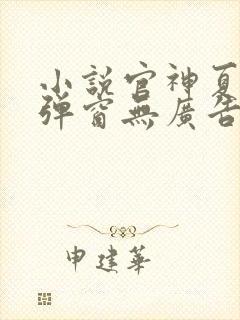 小說官神夏
彈窗無廣告
申建華